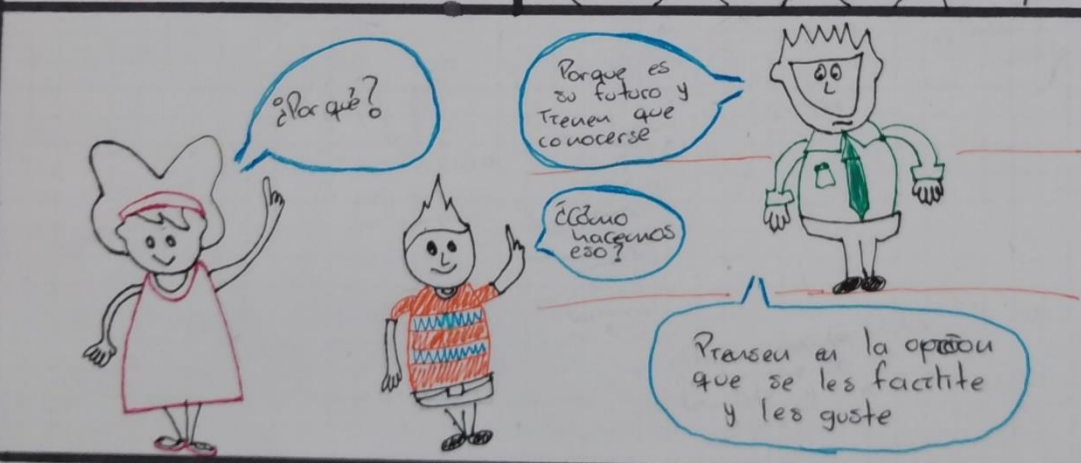 ¿Por qué?
Porque es
su futuro y
tienen que
conocerse
¿Cómo
hacemos
eso?
Piensen en la opción
que se les facilite
y les guste